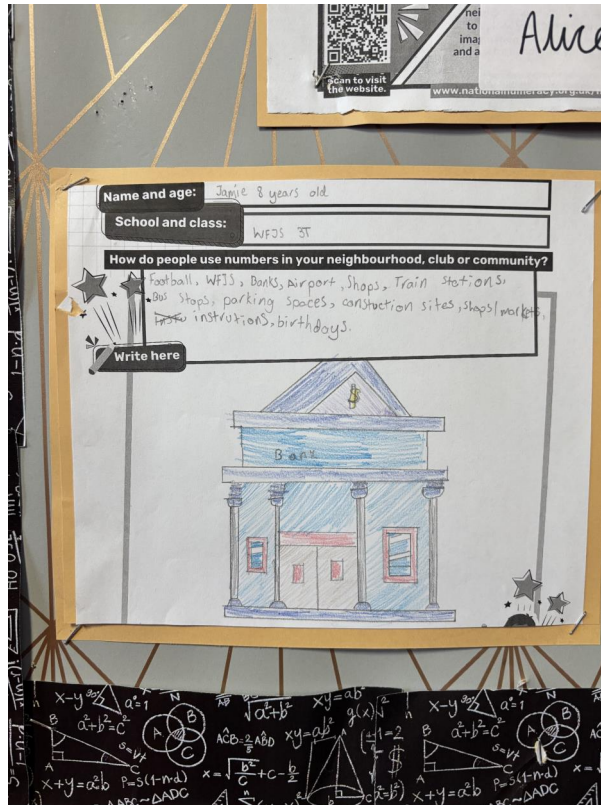 nei
to
imag
and a
Alice
scan to visit
the website.
www.nationalnumeracy.org.uk/
Name and age: Jamie 8 years old
School and class: WFJS 3T
How do people use numbers in your neighbourhood, club or community?
Football, WFJS, Banks, Airport, Shops, Train stations,
Bus stops, parking spaces, constuction sites, shops/markets,
instrutions, birthdays.
Write here
$
Bank
x-y
a°=1
N
√a²+b²
xy=ab²
g(x)
x-y
a°=1
N
B
a²+b²=c²
A
B
C
AĈB=2/5 ABD
xy=ab²
B
a²+b²=c²
A
B
C
A
C
s=vt
$
A
C
s=vt
x+y=a²b
P=S(1-n·d)
x=√b²/c+c-b/2
x+y=a²b
P=S(1-n·d)
∆ABC~∆ADC